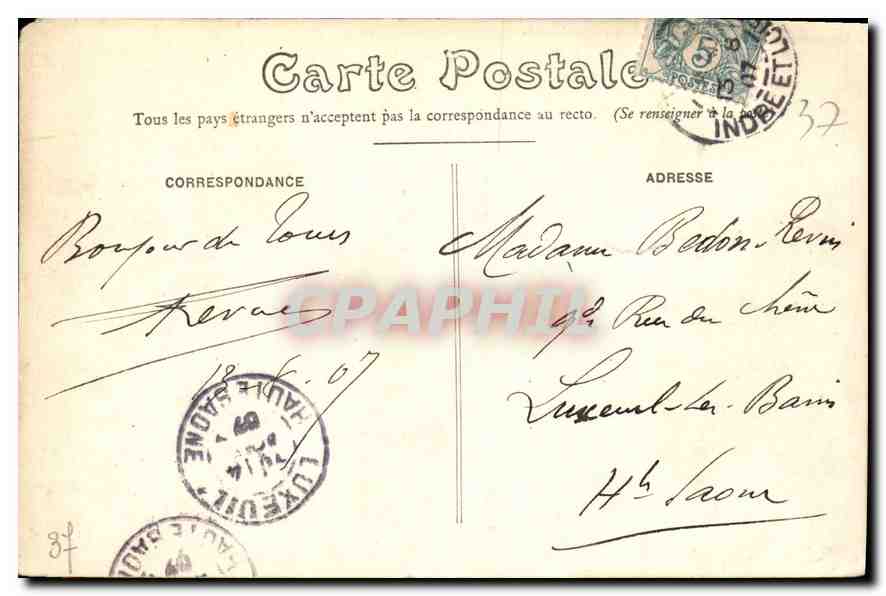 Carte Postale
5
POSTES
13
07
INDRE ET LOIRE
Tous les pays étrangers n'acceptent pas la correspondance au recto. (Se renseigner à la poste)
37
CORRESPONDANCE
Bonjour de Tours
13-8-07
ADRESSE
Madame Bedon-
Rue du Chêne
Luxeuil-les-Bains
Hte Saone
CPAPHIL
LUXEUIL
HAUTE SAONE
14
07
HAUTE SAONE
07
37